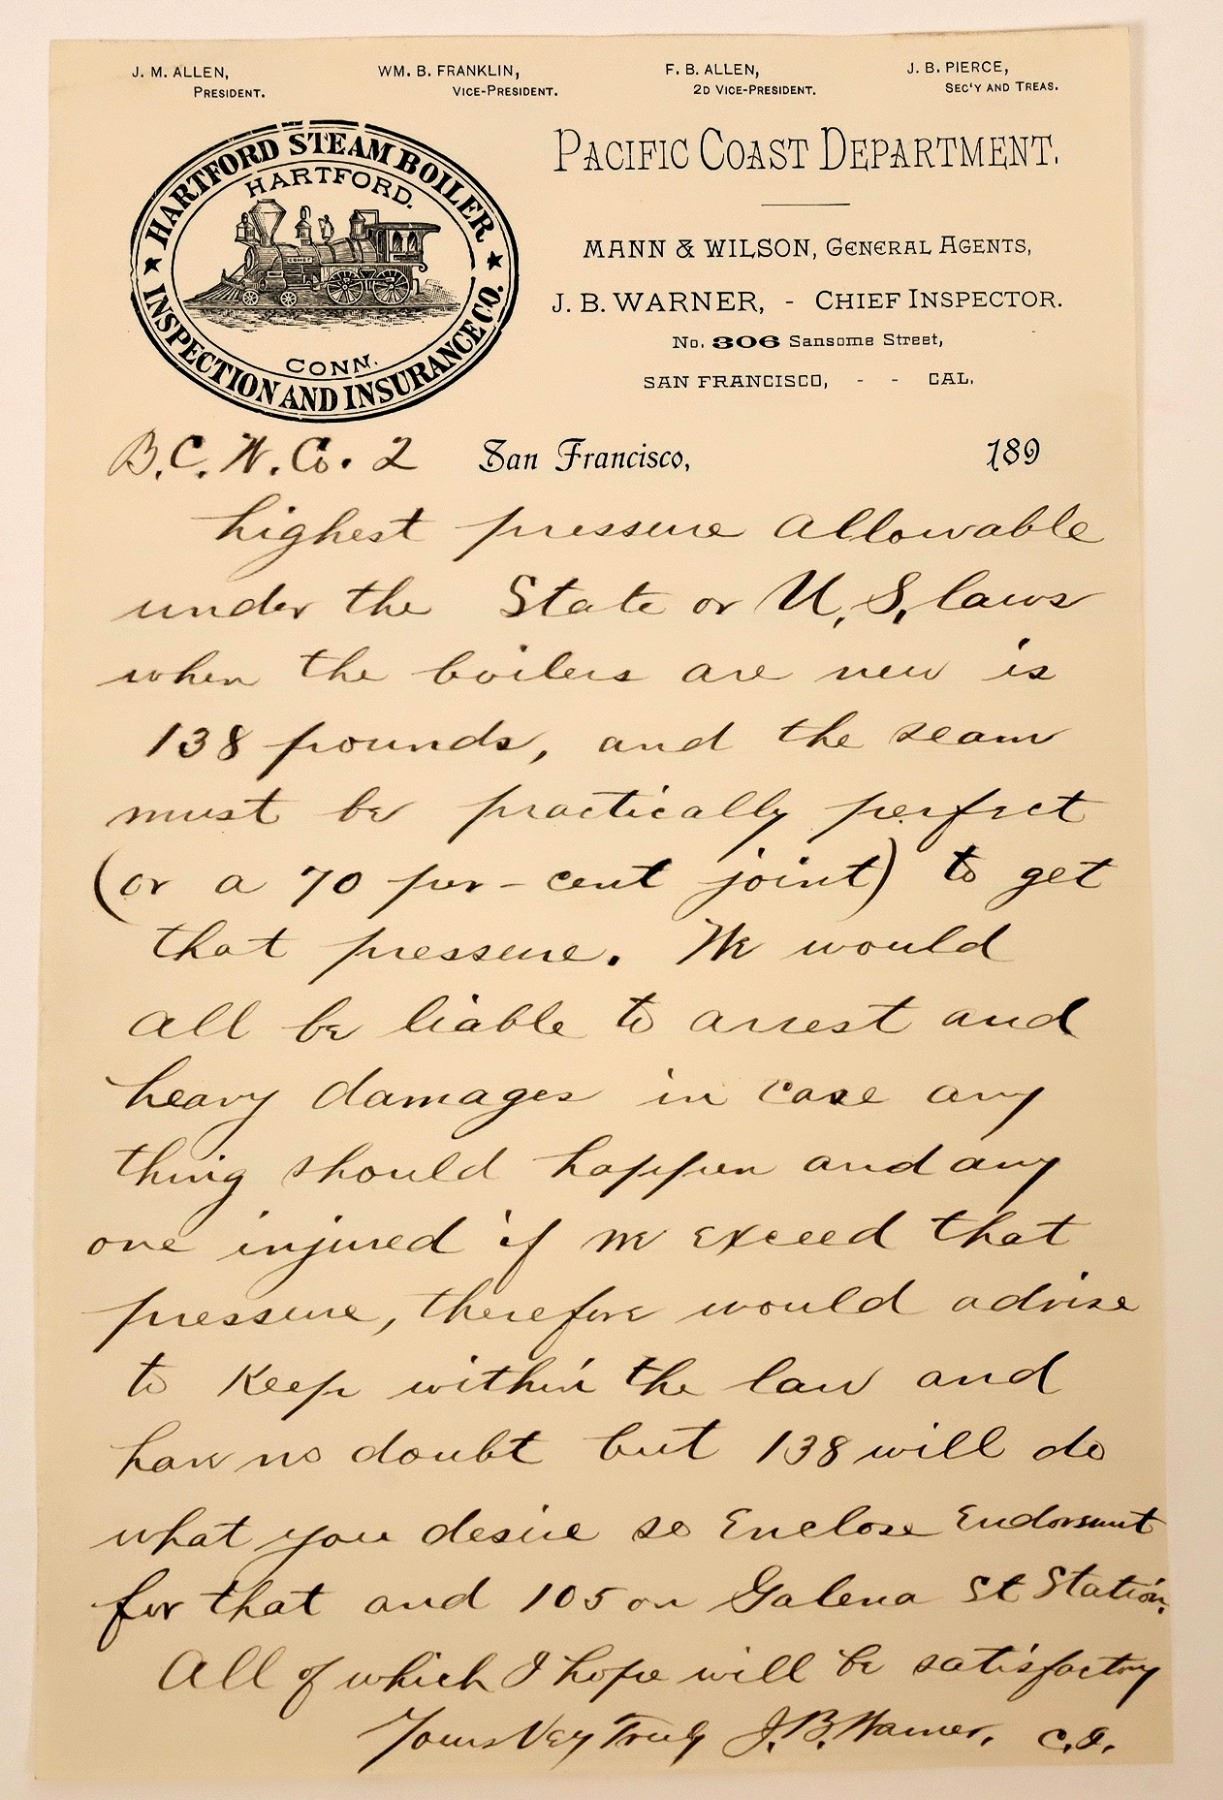 J. M. ALLEN, WM. B. FRANKLIN, F. B. ALLEN, J. B. PIERCE,
PRESIDENT. VICE-PRESIDENT. 2D VICE-PRESIDENT. SEC'Y AND TREAS.
HARTFORD STEAM BOILER
HARTFORD.
CONN.
INSPECTION AND INSURANCE CO.
PACIFIC COAST DEPARTMENT.
MANN & WILSON, GENERAL AGENTS,
J. B. WARNER, - CHIEF INSPECTOR.
No. 306 Sansome Street,
SAN FRANCISCO, - - CAL.
B. C. W. Co. 2 San Francisco, 189
highest pressure allowable
under the State or U, S, laws
when the boilers are new is
138 pounds, and the seam
must be practically perfect
(or a 70 per-cent joint) to get
that pressure. We would
all be liable to arrest and
heavy damages in case any
thing should happen and any
one injured if we exceed that
pressure, therefore would advise
to Keep within the law and
have no doubt but 138 will do
what you desire so Enclose Endorsment
for that and 105 on Galena St Station.
All of which I hope will be satisfactory
Yours Very Truly J. B. Warner. C. I.